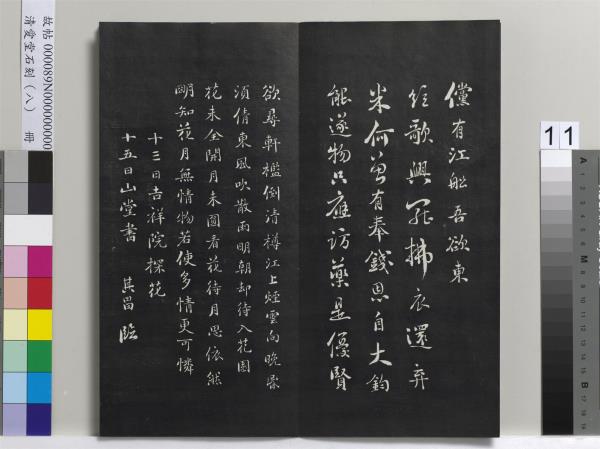 儻有江船吾欲東
歌興罷拂衣還弃
米何曾有奉錢思自大鈞
能遂物只應訪藥是優賢
欲尋軒檻倒清樽江上煙雲向晚昏
須倩東風吹散雨明朝却待入花園
花未全開月未圓看花待月思依然
明知花月無情物若使多情更可憐
十三日吉祥院探花
十五日山堂書 其昌臨
故帖 000089N000000000
清愛堂石刻（八） 冊
11